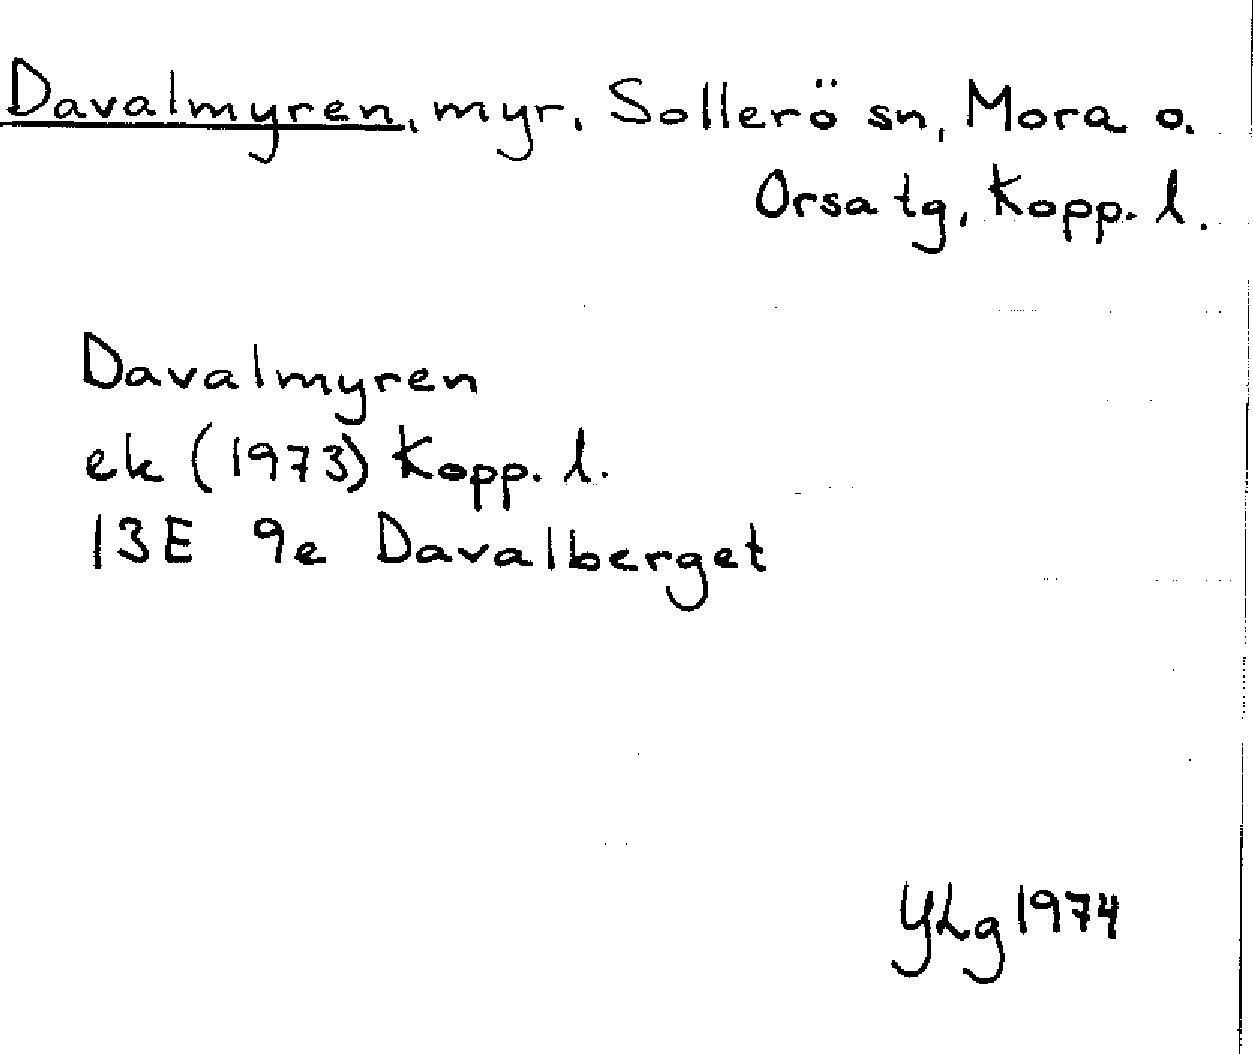 Davalmyren, myr, Sollerö sn, Mora o.
Orsa tg, Kopp. l.
Davalmyren
ek (1973) Kopp. l.
13E 9e Davalberget
YLg 1974